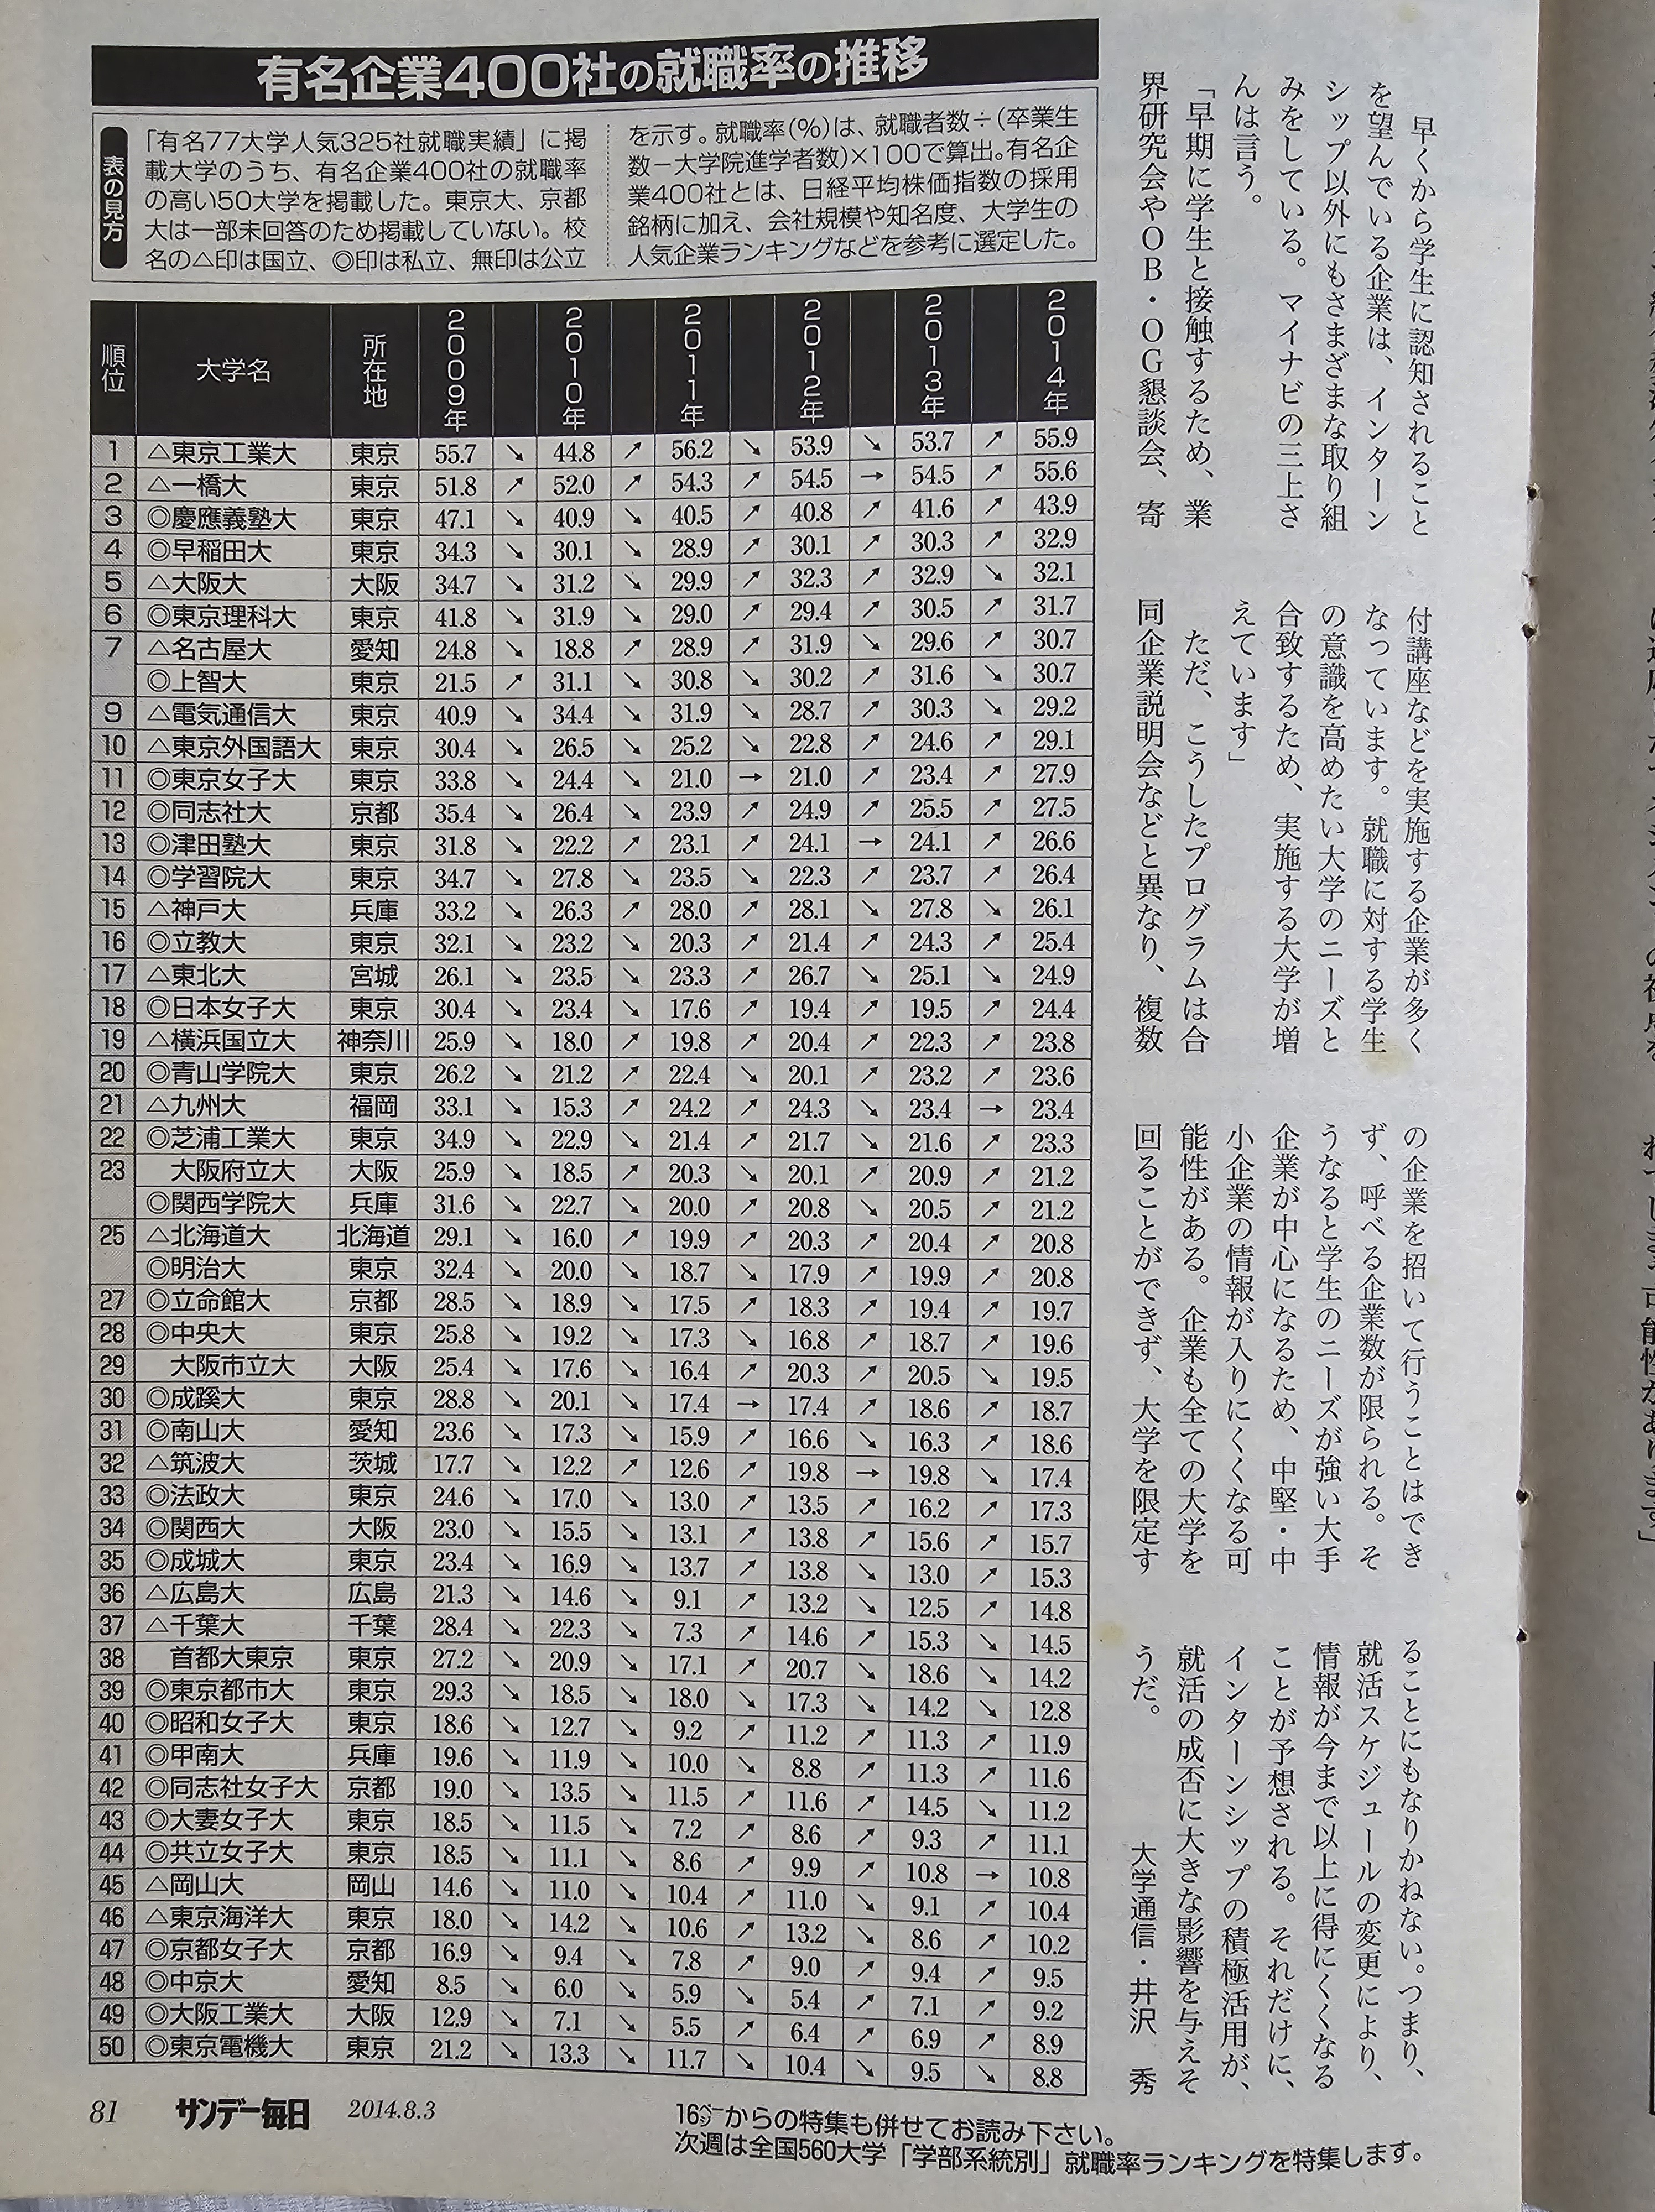 有名企業400社の就職率の推移
表の見方
「有名77大学人気325社就職実績」に掲
載大学のうち、有名企業400社の就職率
の高い50大学を掲載した。東京大、京都
大は一部未回答のため掲載していない。校
名の△印は国立、◎印は私立、無印は公立
を示す。就職率(%)は、就職者数÷(卒業生
数−大学院進学者数)×100で算出。有名企
業400社とは、日経平均株価指数の採用
銘柄に加え、会社規模や知名度、大学生の
人気企業ランキングなどを参考に選定した。
順位 大学名 所在地 2009年 2010年 2011年 2012年 2013年 2014年
1 △東京工業大 東京 55.7 ↘ 44.8 ↗ 56.2 ↘ 53.9 ↘ 53.7 ↗ 55.9
2 △一橋大 東京 51.8 ↗ 52.0 ↗ 54.3 ↗ 54.5 → 54.5 ↗ 55.6
3 ◎慶應義塾大 東京 47.1 ↘ 40.9 ↘ 40.5 ↗ 40.8 ↗ 41.6 ↗ 43.9
4 ◎早稲田大 東京 34.3 ↘ 30.1 ↘ 28.9 ↗ 30.1 ↗ 30.3 ↗ 32.9
5 △大阪大 大阪 34.7 ↘ 31.2 ↘ 29.9 ↗ 32.3 ↗ 32.9 ↘ 32.1
6 ◎東京理科大 東京 41.8 ↘ 31.9 ↘ 29.0 ↗ 29.4 ↗ 30.5 ↗ 31.7
7 △名古屋大 愛知 24.8 ↘ 18.8 ↗ 28.9 ↗ 31.9 ↘ 29.6 ↗ 30.7
◎上智大 東京 21.5 ↗ 31.1 ↘ 30.8 ↘ 30.2 ↗ 31.6 ↘ 30.7
9 △電気通信大 東京 40.9 ↘ 34.4 ↘ 31.9 ↘ 28.7 ↗ 30.3 ↘ 29.2
10 △東京外国語大 東京 30.4 ↘ 26.5 ↘ 25.2 ↘ 22.8 ↗ 24.6 ↗ 29.1
11 ◎東京女子大 東京 33.8 ↘ 24.4 ↘ 21.0 → 21.0 ↗ 23.4 ↗ 27.9
12 ◎同志社大 京都 35.4 ↘ 26.4 ↘ 23.9 ↗ 24.9 ↗ 25.5 ↗ 27.5
13 ◎津田塾大 東京 31.8 ↘ 22.2 ↗ 23.1 ↗ 24.1 → 24.1 ↗ 26.6
14 ◎学習院大 東京 34.7 ↘ 27.8 ↘ 23.5 ↘ 22.3 ↗ 23.7 ↗ 26.4
15 △神戸大 兵庫 33.2 ↘ 26.3 ↗ 28.0 ↗ 28.1 ↘ 27.8 ↘ 26.1
16 ◎立教大 東京 32.1 ↘ 23.2 ↘ 20.3 ↗ 21.4 ↗ 24.3 ↗ 25.4
17 △東北大 宮城 26.1 ↘ 23.5 ↘ 23.3 ↗ 26.7 ↘ 25.1 ↘ 24.9
18 ◎日本女子大 東京 30.4 ↘ 23.4 ↘ 17.6 ↗ 19.4 ↗ 19.5 ↗ 24.4
19 △横浜国立大 神奈川 25.9 ↘ 18.0 ↗ 19.8 ↗ 20.4 ↗ 22.3 ↗ 23.8
20 ◎青山学院大 東京 26.2 ↘ 21.2 ↗ 22.4 ↘ 20.1 ↗ 23.2 ↗ 23.6
21 △九州大 福岡 33.1 ↘ 15.3 ↗ 24.2 ↗ 24.3 ↘ 23.4 → 23.4
22 ◎芝浦工業大 東京 34.9 ↘ 22.9 ↘ 21.4 ↗ 21.7 ↘ 21.6 ↗ 23.3
23 大阪府立大 大阪 25.9 ↘ 18.5 ↗ 20.3 ↘ 20.1 ↗ 20.9 ↗ 21.2
◎関西学院大 兵庫 31.6 ↘ 22.7 ↘ 20.0 ↗ 20.8 ↘ 20.5 ↗ 21.2
25 △北海道大 北海道 29.1 ↘ 16.0 ↗ 19.9 ↗ 20.3 ↗ 20.4 ↗ 20.8
◎明治大 東京 32.4 ↘ 20.0 ↘ 18.7 ↘ 17.9 ↗ 19.9 ↗ 20.8
27 ◎立命館大 京都 28.5 ↘ 18.9 ↘ 17.5 ↗ 18.3 ↗ 19.4 ↗ 19.7
28 ◎中央大 東京 25.8 ↘ 19.2 ↘ 17.3 ↘ 16.8 ↗ 18.7 ↗ 19.6
29 大阪市立大 大阪 25.4 ↘ 17.6 ↘ 16.4 ↗ 20.3 ↗ 20.5 ↘ 19.5
30 ◎成蹊大 東京 28.8 ↘ 20.1 ↘ 17.4 → 17.4 ↗ 18.6 ↗ 18.7
31 ◎南山大 愛知 23.6 ↘ 17.3 ↘ 15.9 ↗ 16.6 ↘ 16.3 ↗ 18.6
32 △筑波大 茨城 17.7 ↘ 12.2 ↗ 12.6 ↗ 19.8 → 19.8 ↘ 17.4
33 ◎法政大 東京 24.6 ↘ 17.0 ↘ 13.0 ↗ 13.5 ↗ 16.2 ↗ 17.3
34 ◎関西大 大阪 23.0 ↘ 15.5 ↘ 13.1 ↗ 13.8 ↗ 15.6 ↗ 15.7
35 ◎成城大 東京 23.4 ↘ 16.9 ↘ 13.7 ↗ 13.8 ↘ 13.0 ↗ 15.3
36 △広島大 広島 21.3 ↘ 14.6 ↘ 9.1 ↗ 13.2 ↘ 12.5 ↗ 14.8
37 △千葉大 千葉 28.4 ↘ 22.3 ↘ 7.3 ↗ 14.6 ↗ 15.3 ↘ 14.5
38 首都大東京 東京 27.2 ↘ 20.9 ↘ 17.1 ↗ 20.7 ↘ 18.6 ↘ 14.2
39 ◎東京都市大 東京 29.3 ↘ 18.5 ↘ 18.0 ↘ 17.3 ↘ 14.2 ↘ 12.8
40 ◎昭和女子大 東京 18.6 ↘ 12.7 ↘ 9.2 ↗ 11.2 ↗ 11.3 ↗ 11.9
41 ◎甲南大 兵庫 19.6 ↘ 11.9 ↘ 10.0 ↘ 8.8 ↗ 11.3 ↗ 11.6
42 ◎同志社女子大 京都 19.0 ↘ 13.5 ↘ 11.5 ↗ 11.6 ↗ 14.5 ↘ 11.2
43 ◎大妻女子大 東京 18.5 ↘ 11.5 ↘ 7.2 ↗ 8.6 ↗ 9.3 ↗ 11.1
44 ◎共立女子大 東京 18.5 ↘ 11.1 ↘ 8.6 ↗ 9.9 ↗ 10.8 → 10.8
45 △岡山大 岡山 14.6 ↘ 11.0 ↘ 10.4 ↗ 11.0 ↘ 9.1 ↗ 10.4
46 △東京海洋大 東京 18.0 ↘ 14.2 ↘ 10.6 ↗ 13.2 ↘ 8.6 ↗ 10.2
47 ◎京都女子大 京都 16.9 ↘ 9.4 ↘ 7.8 ↗ 9.0 ↗ 9.4 ↗ 9.5
48 ◎中京大 愛知 8.5 ↘ 6.0 ↘ 5.9 ↘ 5.4 ↗ 7.1 ↗ 9.2
49 ◎大阪工業大 大阪 12.9 ↘ 7.1 ↘ 5.5 ↗ 6.4 ↗ 6.9 ↗ 8.9
50 ◎東京電機大 東京 21.2 ↘ 13.3 ↘ 11.7 ↘ 10.4 ↘ 9.5 ↘ 8.8
早くから学生に認知されること
を望んでいる企業は、インターン
シップ以外にもさまざまな取り組
みをしている。マイナビの三上さ
んは言う。
「早期に学生と接触するため、業
界研究会やOB・OG懇談会、寄
付講座などを実施する企業が多く
なっています。就職に対する学生
の意識を高めたい大学のニーズと
合致するため、実施する大学が増
えています」
ただ、こうしたプログラムは合
同企業説明会などと異なり、複数
の企業を招いて行うことはでき
ず、呼べる企業数が限られる。そ
うなると学生のニーズが強い大手
企業が中心になるため、中堅・中
小企業の情報が入りにくくなる可
能性がある。企業も全ての大学を
回ることができず、大学を限定す
ることにもなりかねない。つまり、
就活スケジュールの変更により、
情報が今まで以上に得にくくなる
ことが予想される。それだけに、
インターンシップの積極活用が、
就活の成否に大きな影響を与えそ
うだ。
大学通信・井沢 秀
81 サンデー毎日 2014.8.3
16ページからの特集も併せてお読み下さい。
次週は全国560大学「学部系統別」就職率ランキングを特集します。